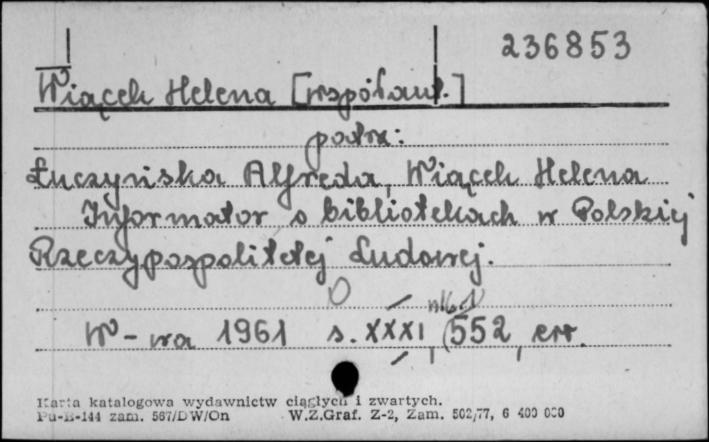 236853
Wiącek Helena [współaut.]
patrz:
Łuczyńska Alfreda, Wiącek Helena
Informator o bibliotekach w Polskiej
Rzeczypospolitej Ludowej.
nlb. 1
W-wa 1961 s. XXXI, 552, err.
Karta katalogowa wydawnictw ciągłych i zwartych.
Pu-B-144 zam. 567/DW/On W.Z.Graf. Z-2, Zam. 502/77, 6 400 000